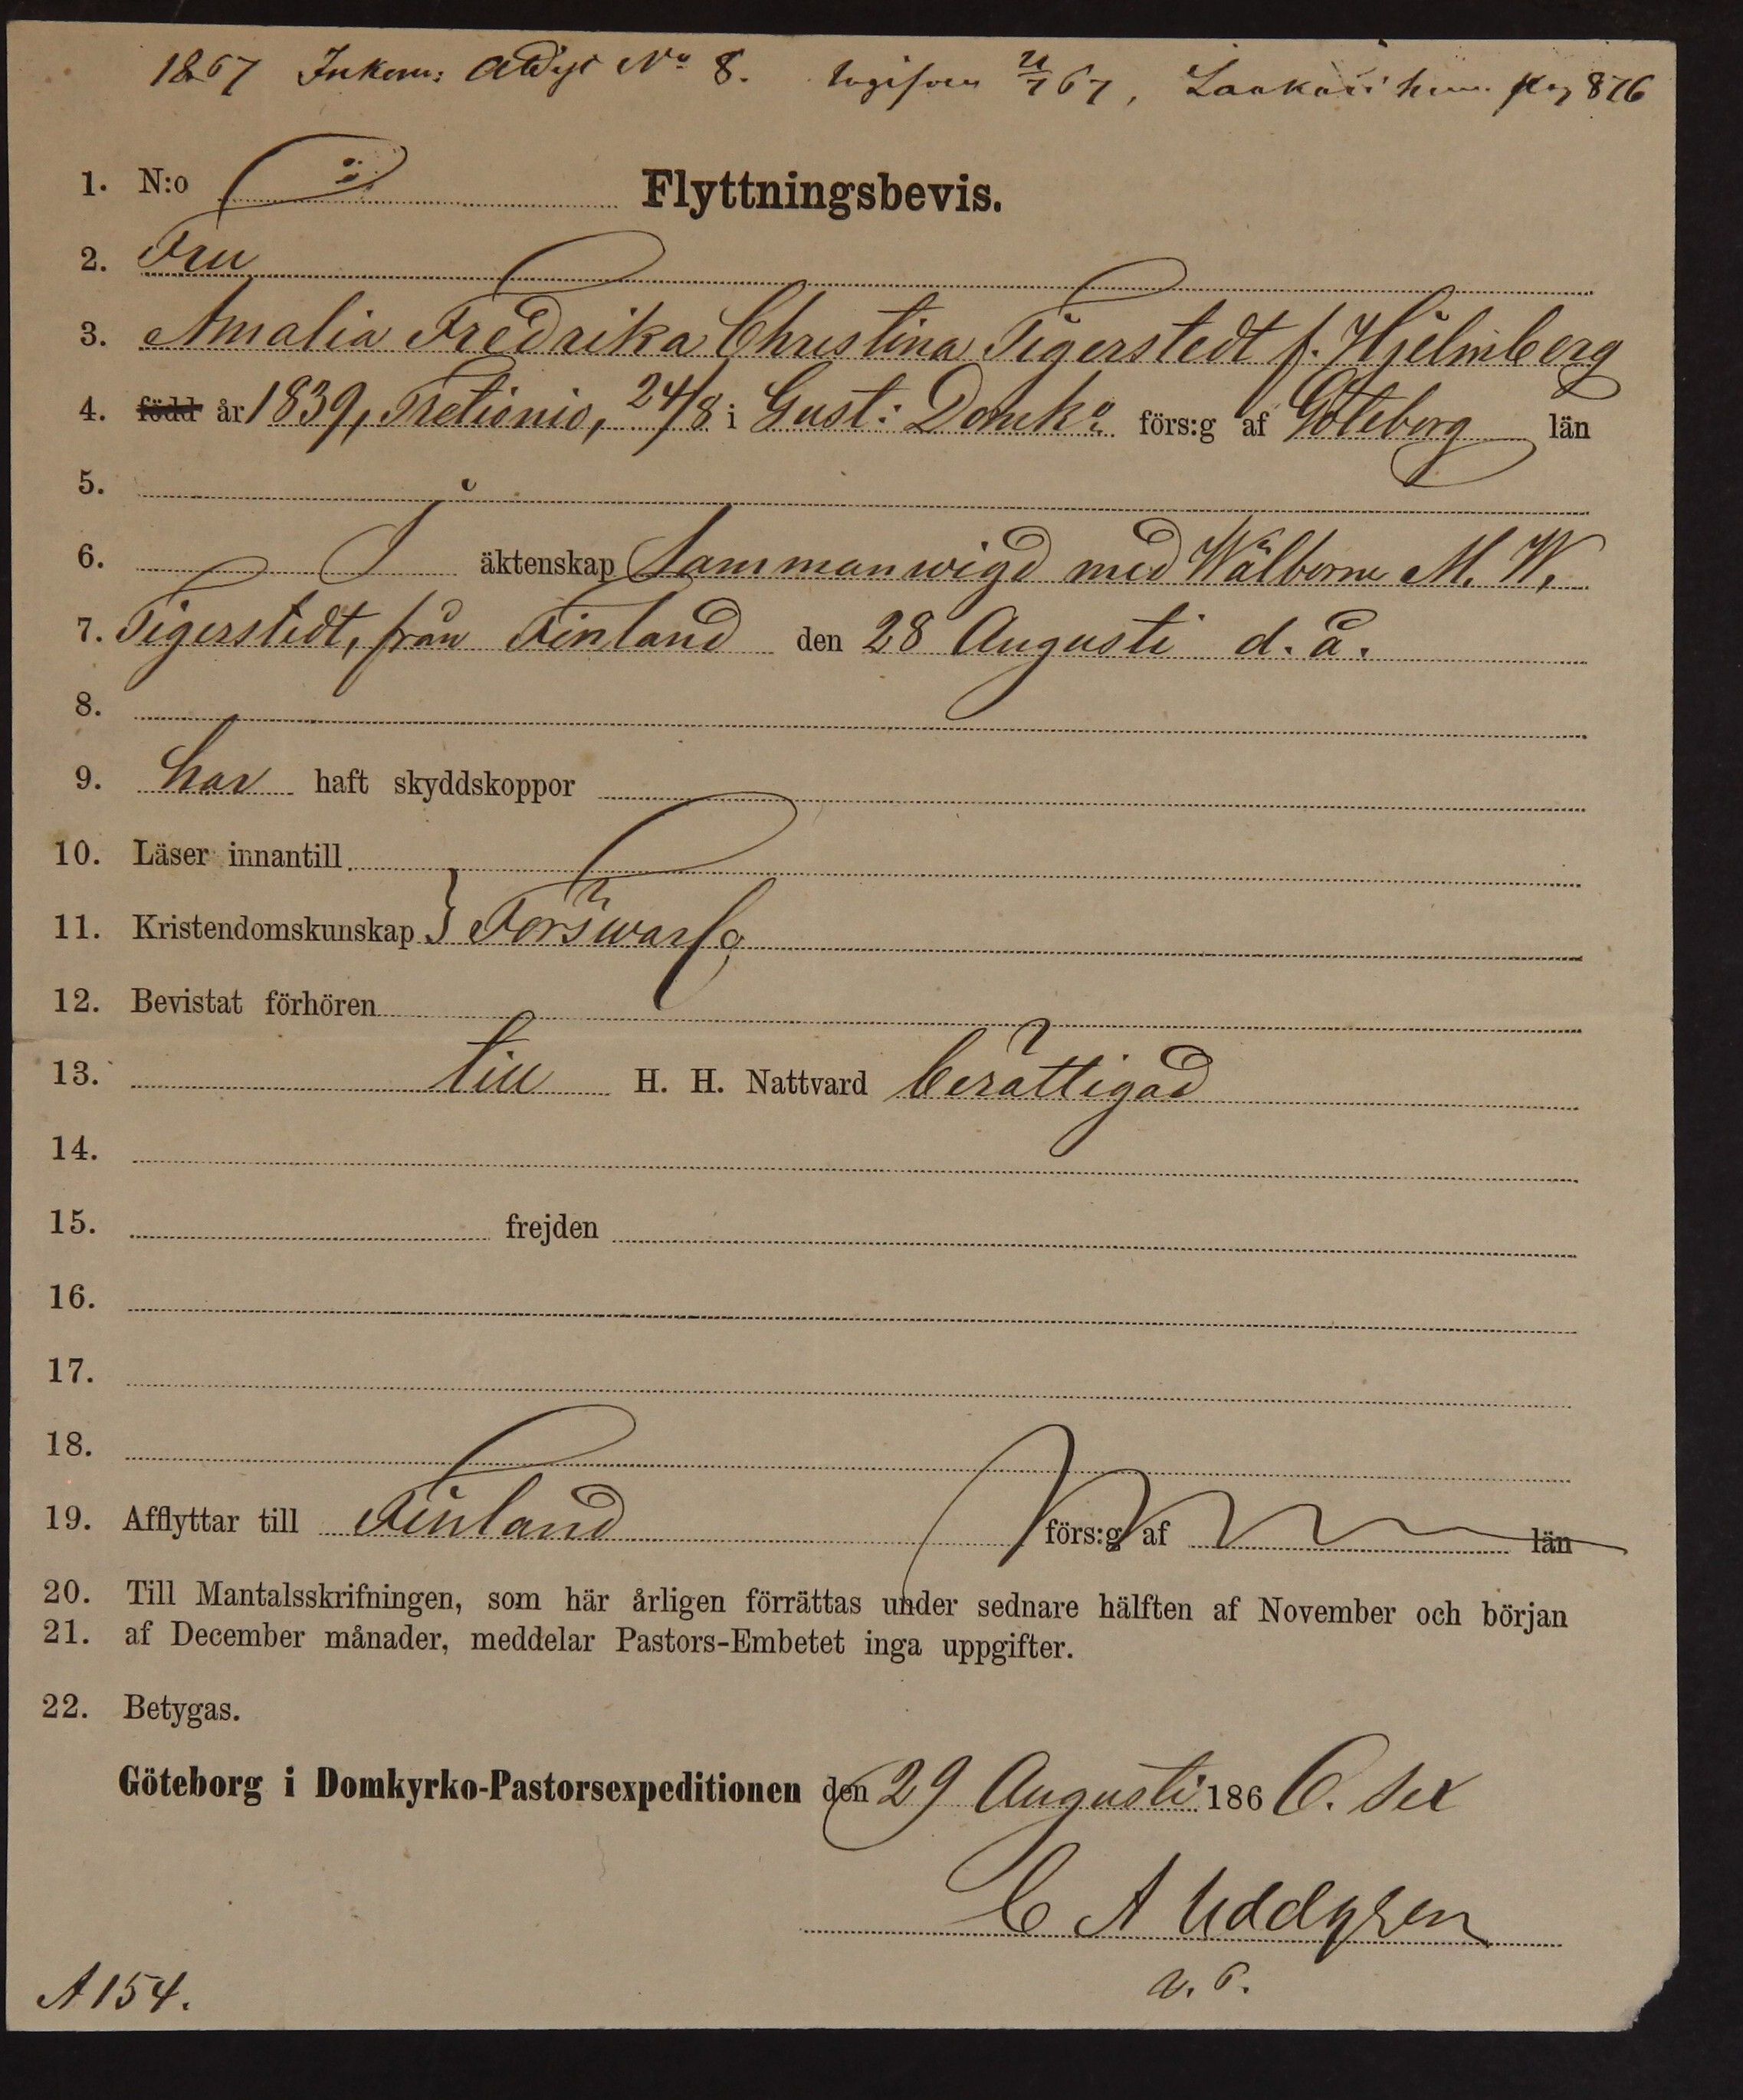 1867 Inkom: Attest No 8. 67, pag 876
1. N:o Flyttningsbevis.
2. Fru
3. Amalia Fredrika Christina Tigerstedt f. Hjelmberg
4. född år 1839, Trettionio, 24/8 i Gust: Domk: förs:g af Göteborg län
5.
6. I äktenskap Sammanwigd med Wälborne M. W.
7. Tigerstedt, från Finland den 28 Augusti d. å.
8.
9. har haft skyddskoppor
10. Läser innantill
11. Kristendomskunskap } Förswarlig
12. Bevistat förhören
13. till H. H. Nattvard berättigad
14.
15. frejden
16.
17.
18.
19. Afflyttar till Finland förs:g af län
20. Till Mantalsskrifningen, som här årligen förrättas under sednare hälften af November och början
21. af December månader, meddelar Pastors-Embetet inga uppgifter.
22. Betygas.
Göteborg i Domkyrko-Pastorsexpeditionen den 29 Augusti 1866. sex
C A Uddgren
v. P.
A 154.